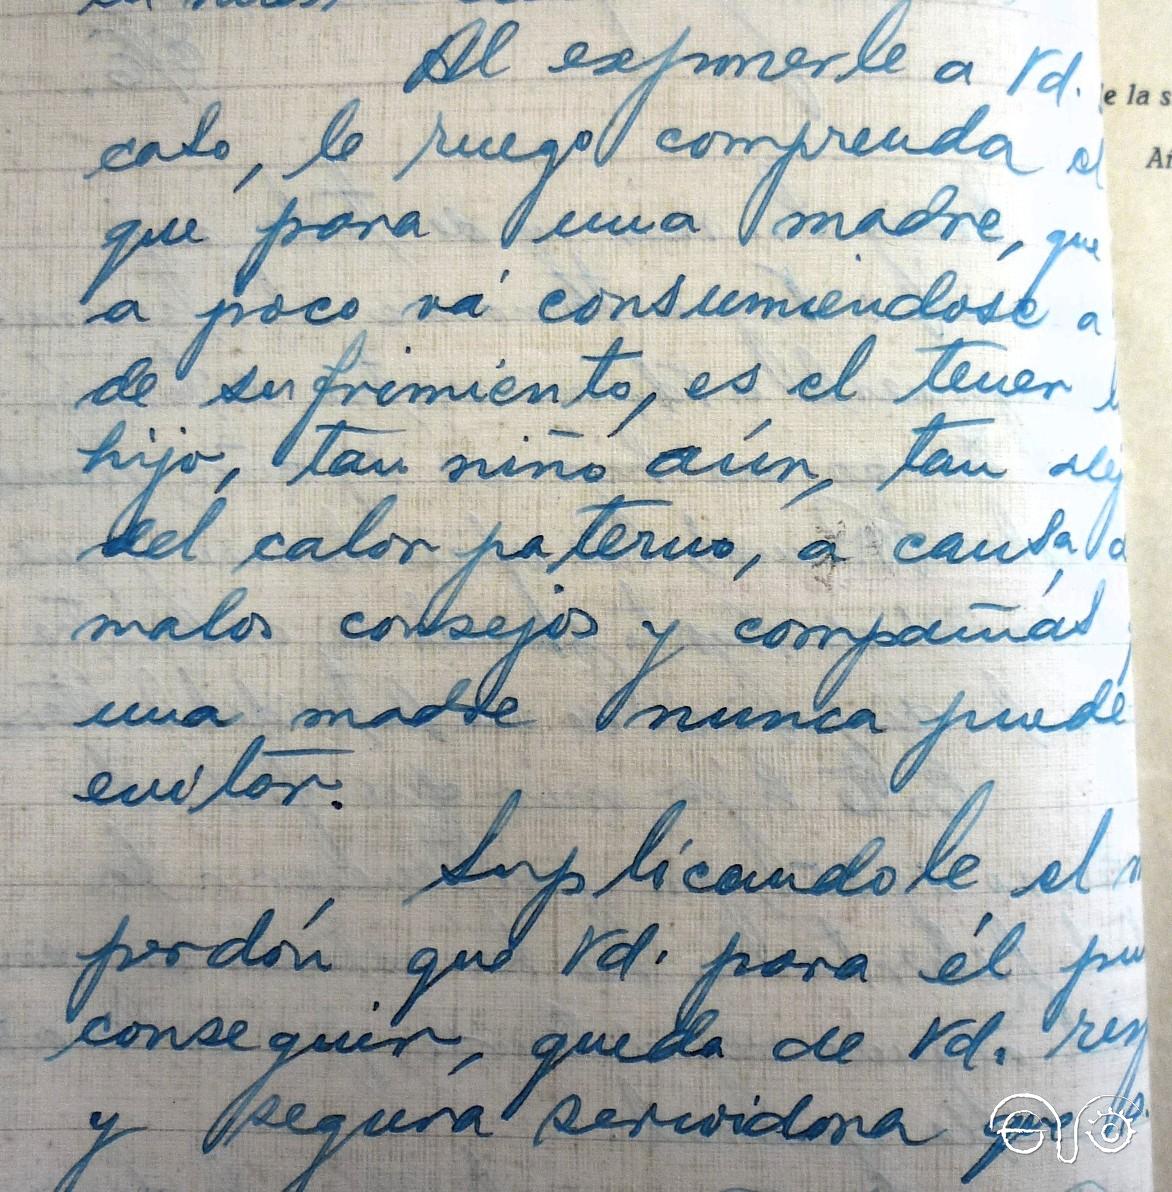 Al exponerle a Vd.
caso, le ruego comprenda el
que para una madre, que
a poco vá consumiendose a
de sufrimiento, es el tener
hijo, tan niño aún, tan alej
del calor paterno, a causa d
malos consejos y compañías
una madre nunca puede
evitar.
Suplicandole el m
perdón que Vd. para él pu
conseguir, queda de Vd. resp
y segura servidora
e la s
Añ